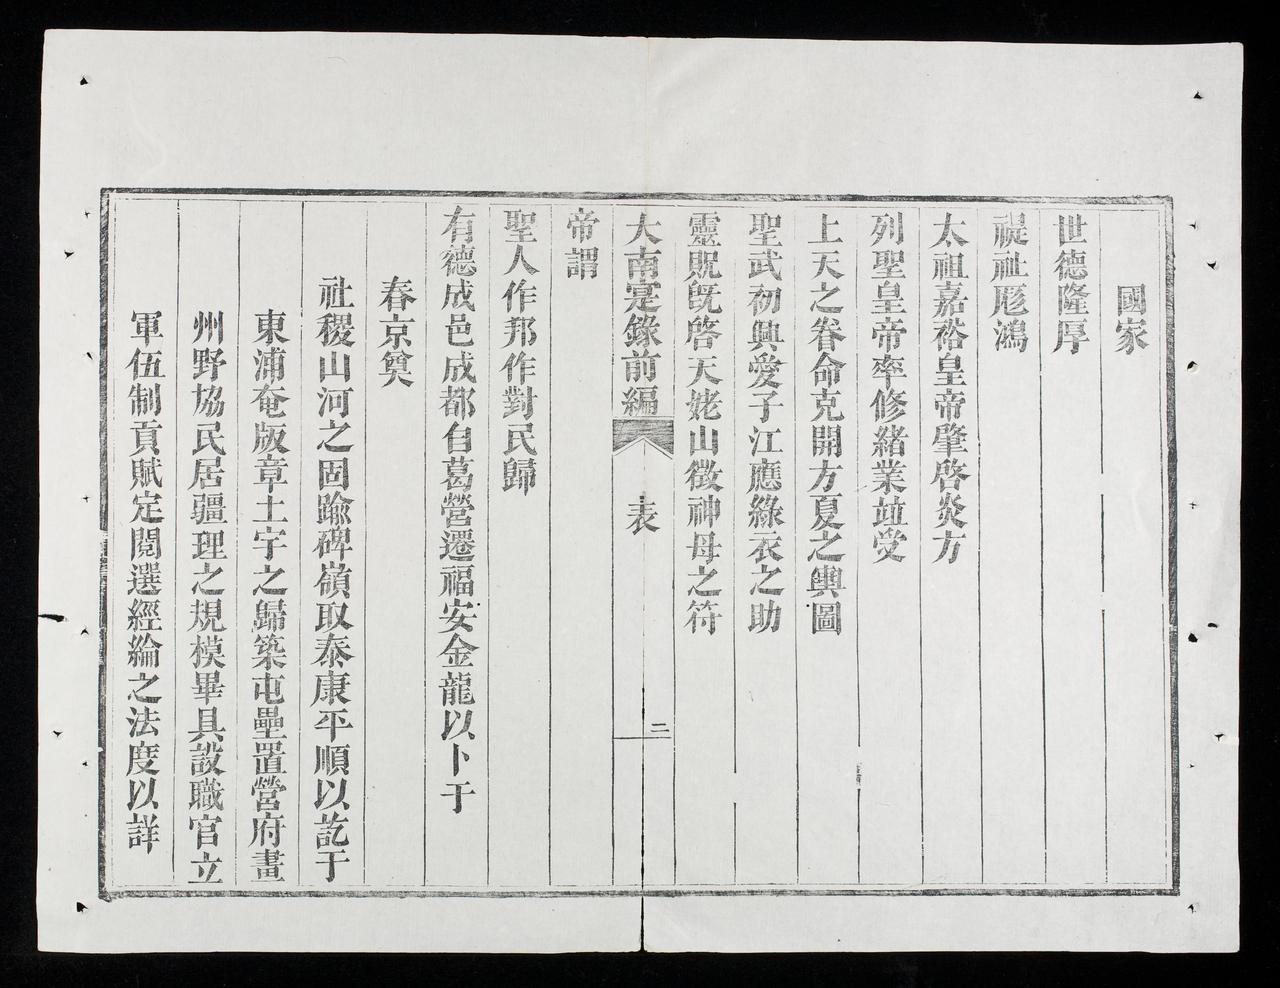 國家
世德隆厚
禔祉厖鴻
太祖嘉裕皇帝肇啓炎方
列聖皇帝率修緒業竝受
上天之眷命克開方夏之輿圖
聖武初興愛子江應綠衣之助
靈貺旣啓天姥山徵神母之符
大南寔錄前編 表 二
帝謂
聖人作邦作對民歸
有德成邑成都自葛營遷福安金龍以卜于
春京奠
社稷山河之固踰碑嶺取泰康平順以訖于
東浦奄版章土宇之歸築屯壘置營府畫
州野協民居疆理之規模畢具設職官立
軍伍制貢賦定閱選經綸之法度以詳